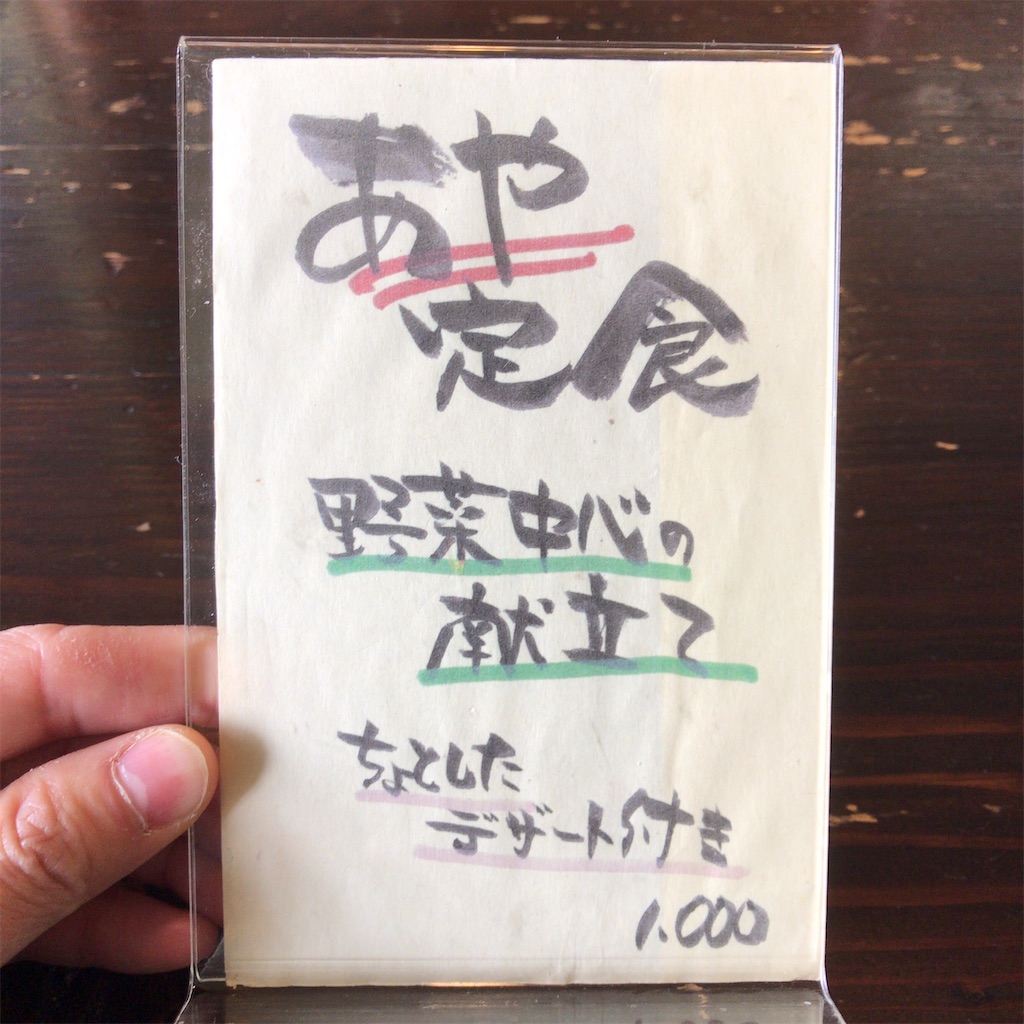 あや
定食
野菜中心の
献立て
ちょとした
デザート付き
1.000